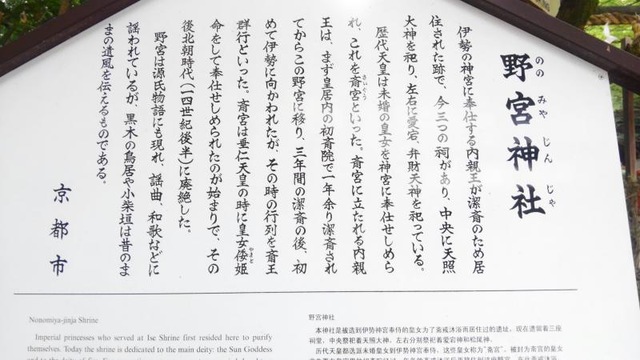 野宮神社
ののみやじんじゃ
伊勢の神宮に奉仕する内親王が潔斎のため居
住された跡で、今三つの祠があり、中央に天照
大神を祀り、左右に愛宕、弁財天神を祀っている。
歴代天皇は未婚の皇女を神宮に奉仕せしめら
れ、これを斎宮といった。斎宮に立たれる内親
さいぐう
王は、まず皇居内の初斎院で一年余り潔斎され
てからこの野宮に移り、三年間の潔斎の後、初
めて伊勢に向かわれたが、その時の行列を斎王
群行といった。斎宮は垂仁天皇の時に皇女倭姫
やまと
命をして奉仕せしめられたのが始まりで、その
後北朝時代(一四世紀後半)に廃絶した。
野宮は源氏物語にも現れ、謡曲、和歌などに
謡われているが、黒木の鳥居や小柴垣は昔のま
まの遺風を伝えるものである。
京都市
Nonomiya-jinja Shrine
Imperial princesses who served at Ise Shrine first resided here to purify
themselves. Today the shrine is dedicated to the main deity: the Sun Goddess
野宮神社
本神社是被选到伊势神宫奉待的皇女为了斋戒沐浴而居住过的遗址。现在遗留着三座
祠堂，中央祭祀着天照大神，左右分别祭祀着爱宕神和松尾神。